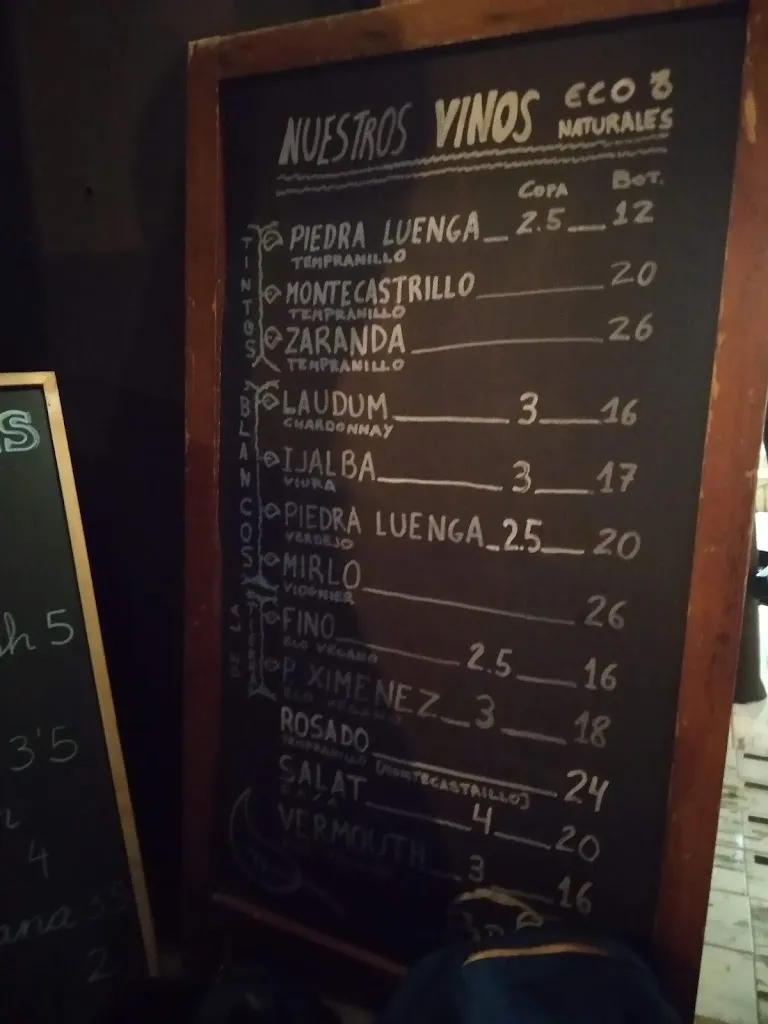 NUESTROS VINOS ECO &
NATURALES
COPA BOT.
TINTOS
PIEDRA LUENGA 2.5 12
TEMPRANILLO
MONTECASTRILLO 20
TEMPRANILLO
ZARANDA 26
TEMPRANILLO
BLANCOS
LAUDUM 3 16
CHARDONNAY
IJALBA 3 17
VIURA
PIEDRA LUENGA 2.5 20
VERDEJO
MIRLO 26
VIOGNIER
DE LA TIERRA
FINO 2.5 16
ECO VEGANO
P. XIMENEZ 3 18
ECO VEGANO
ROSADO 24
TEMPRANILLO (MONTECASTRILLO)
SALAT 4 20
VERMOUTH 3 16
S
h 5
3'5
4
ana 3'5
2